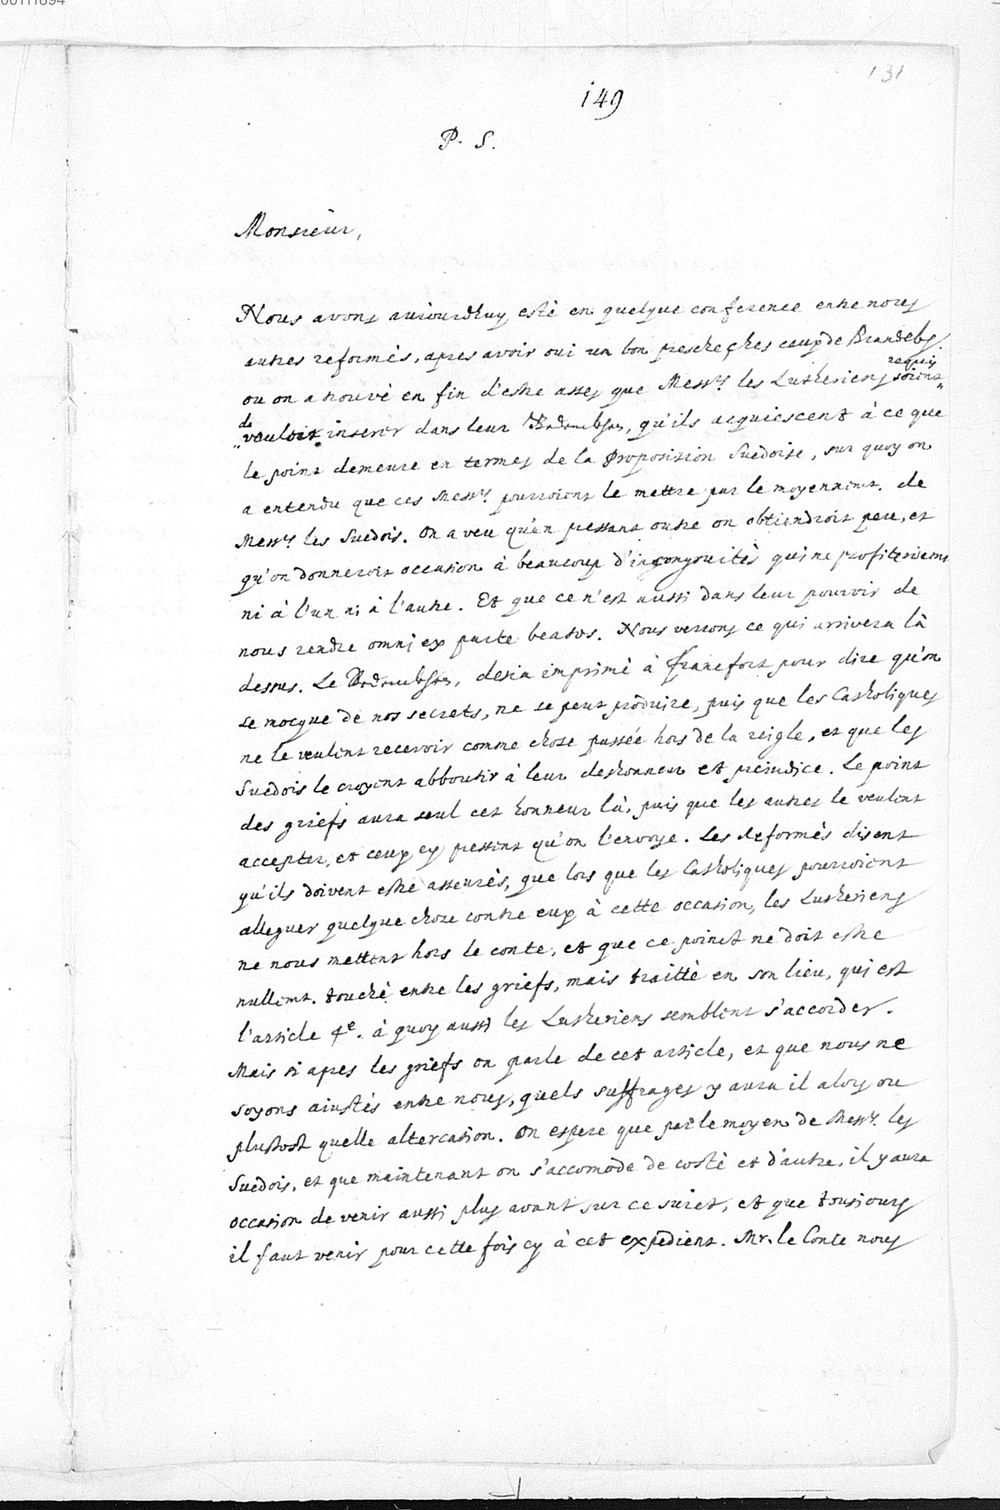 00111894
131
149
P. S.
Monsieur,
Nous avons auiourdhuy esté en quelque conference entre nous
autres reformés, apres avoir oui un bon presche chez ceux de Brandebg
requis
ou on a trouvé en fin d'estre assez que Messrs les Lutheriens soient
de
vouloir inserer dans leur Bedencken, qu'ils acquiescent à ce que
le point demeure en termes de la Proposition Suedoise, sur quoy on
a entendu que ces Messrs pourroient le mettre par le moyennent. de
Messrs les Suedois. On a veu qu'en pressant outre on obtiendroit peu, et
qu'on donneroit occasion à beaucoup d'incongruités qui ne profiteroient
ni à l'un ni à l'autre. Et que ce n'est aussi dans leur pouvoir de
nous rendre omni ex parte beatos. Nous verrons ce qui arrivera là
dessus. Le Bedencken, desia imprimé à francfort pour dire qu'on
se mocque de nos secrets, ne se peut produire, puis que les Catholiques
ne le veulent recevoir comme chose passée hors de la reigle, et que les
Suedois le croyent abboutir à leur deshonneur et preiudice. Le point
des griefs aura seul cet honneur là, puis que les autres le veulent
accepter, et ceux cy pressent qu'on l'envoye. Les Reformés disent
qu'ils doivent estre asseurés, que lors que les Catholiques pourroient
alleguer quelque chose contre eux à cette occasion, les Lutheriens
ne nous mettent hors le conte, et que ce poinct ne doit estre
nullemt. touché entre les griefs, mais traitté en son lieu, qui est
l'article 4e. à quoy aussi les Lutheriens semblent s'accorder.
Mais si apres les griefs on parle de cet article, et que nous ne
soyons aiustés entre nous, quels suffrages y aura il alors ou
plustost quelle altercation. On espere que par le moyen de Messrs les
Suedois, et que maintenant on s'accomode de costé et d'autre, il y aura
occasion de venir aussi plus avant sur ce suiet, et que tousiours
il faut venir pour cette fois cy à cet expedient. Mr. le Conte nous